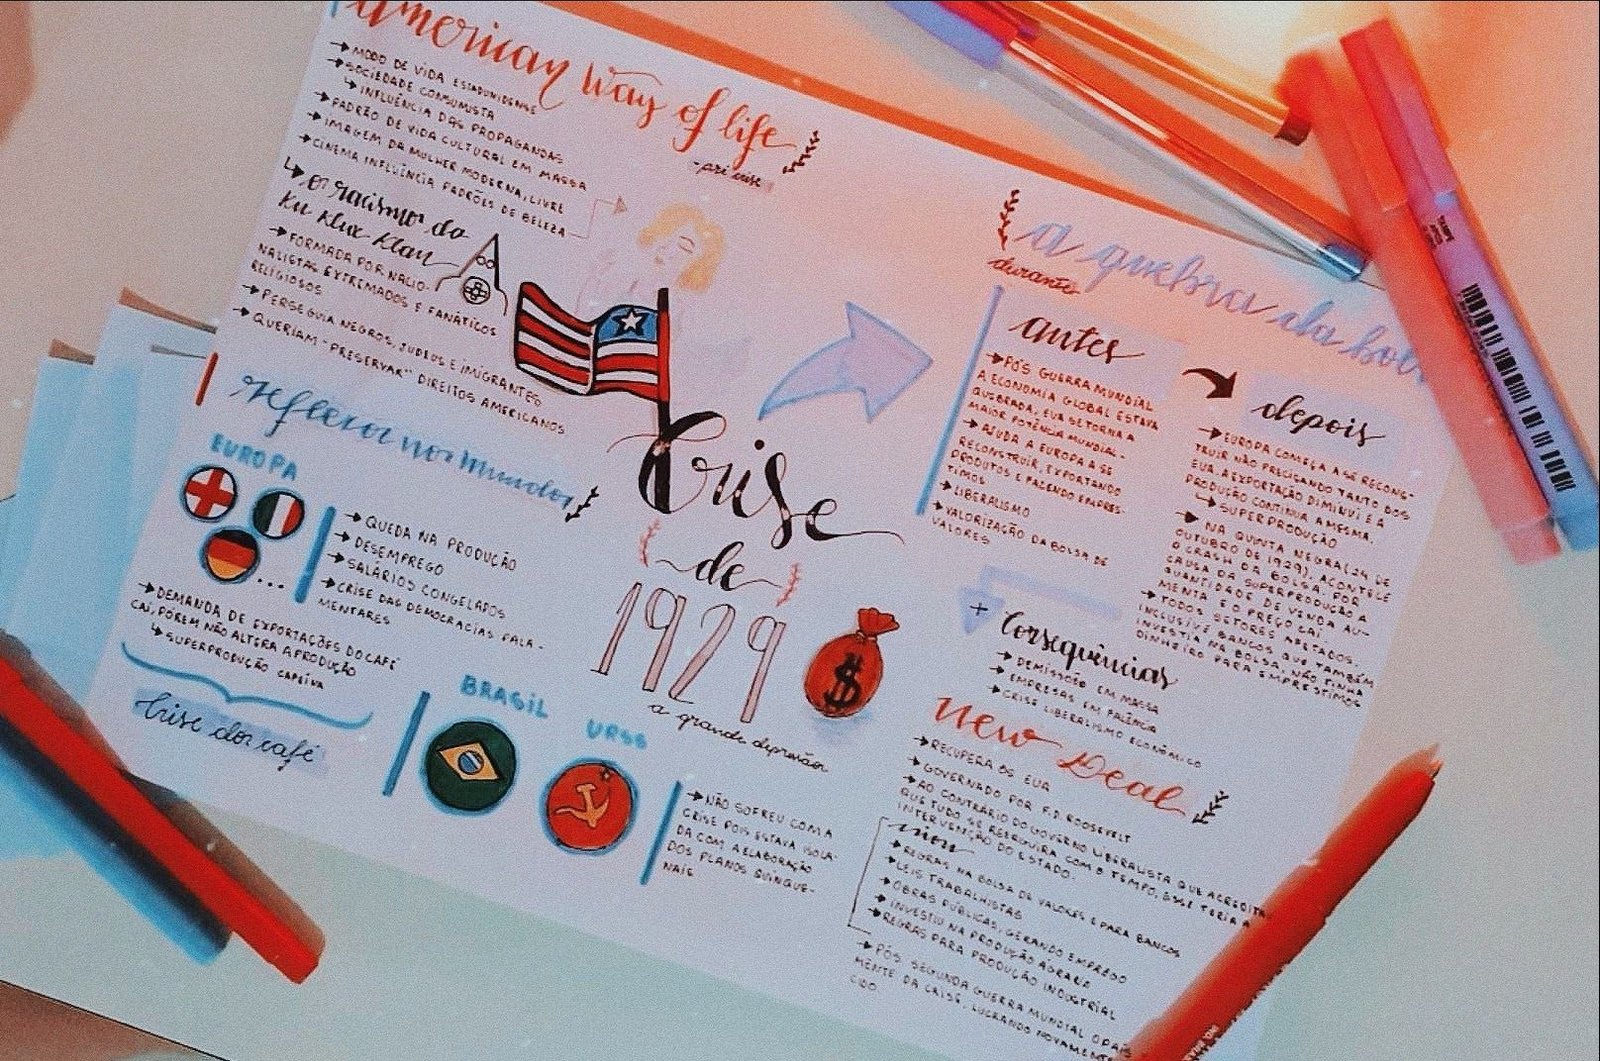 American way of life
- pré crise
→ MODO DE VIDA ESTADUNIDENSE
→ SOCIEDADE CONSUMISTA
↳ INFLUÊNCIA DAS PROPAGANDAS
→ PADRÃO DE VIDA CULTURAL EM MASSA
→ IMAGEM DA MULHER MODERNA, LIVRE
→ CINEMA INFLUÊNCIA PADRÕES DE BELEZA
↳ o racismo da
Ku Klux Klan
→ FORMADA POR NACIO-
NALISTAS EXTREMADOS E FANÁTICOS
RELIGIOSOS
→ PERSEGUIA NEGROS, JUDEUS E IMIGRANTES
→ QUERIAM "PRESERVAR" DIREITOS AMERICANOS
reflexos no mundo
EUROPA
...
→ QUEDA NA PRODUÇÃO
→ DESEMPREGO
→ SALÁRIOS CONGELADOS
→ CRISE DAS DEMOCRACIAS PALA-
MENTARES
→ DEMANDA DE EXPORTAÇÕES DO CAFÉ
CAI, PORÉM NÃO ALTERA A PRODUÇÃO
↳ SUPERPRODUÇÃO CAFEEIRA
Crise do café
BRASIL
URSS
→ NÃO SOFREU COM A
CRISE POIS ESTAVA ISOLA-
DA COM A ELABORAÇÃO
DOS PLANOS QUINQUE-
NAIS
Crise
de
1929
a grande depressão
$
a quebra da bol
durante
antes
→ PÓS GUERRA MUNDIAL
A ECONOMIA GLOBAL ESTAVA
QUEBRADA, EUA SE TORNA A
MAIOR POTÊNCIA MUNDIAL
→ AJUDA A EUROPA A SE
RECONSTRUIR, EXPORTANDO
PRODUTOS E FAZENDO EMPRÉS-
TIMOS
→ LIBERALISMO
→ VALORIZAÇÃO DA BOLSA DE
VALORES
depois
→ EUROPA COMEÇA A SE RECONS-
TRUIR NÃO PRECISANDO TANTO DOS
EUA. A EXPORTAÇÃO DIMINUI E A
PRODUÇÃO CONTINUA A MESMA.
↳ SUPERPRODUÇÃO
→ NA QUINTA NEGRA (24 DE
OUTUBRO DE 1929), ACONTECE
O CRASH DA BOLSA. POR
CAUSA DA SUPERPRODUÇÃO A
QUANTIDADE DE VENDA AU-
MENTA E O PREÇO CAI.
→ TODOS SETORES AFETADOS,
INCLUSIVE BANCOS QUE TAMBÉM
INVESTIA NA BOLSA, NÃO TINHA
DINHEIRO PARA EMPRÉSTIMOS
+ Consequências
→ DEMISSÕES EM MASSA
→ EMPRESAS EM FALÊNCIA
→ CRISE LIBERALISMO ECONÔMICO
New Deal
→ RECUPERA OS EUA
→ GOVERNADO POR F.D. ROOSEVELT
→ AO CONTRÁRIO DO GOVERNO LIBERALISTA QUE ACREDITA
QUE TUDO SE REERGUIRA COM O TEMPO, ESSE TERIA A
INTERVENÇÃO DO ESTADO.
→ REGRAS NA BOLSA DE VALORES E PARA BANCOS
→ LEIS TRABALHISTAS
→ OBRAS PÚBLICAS, GERANDO EMPREGO
→ INVESTIU NA PRODUÇÃO AGRÁRIA
→ REGRAS PARA PRODUÇÃO INDUSTRIAL
→ PÓS SEGUNDA GUERRA MUNDIAL O PAÍS
MENTE DA CRISE, LUCRANDO NOVAMENTE